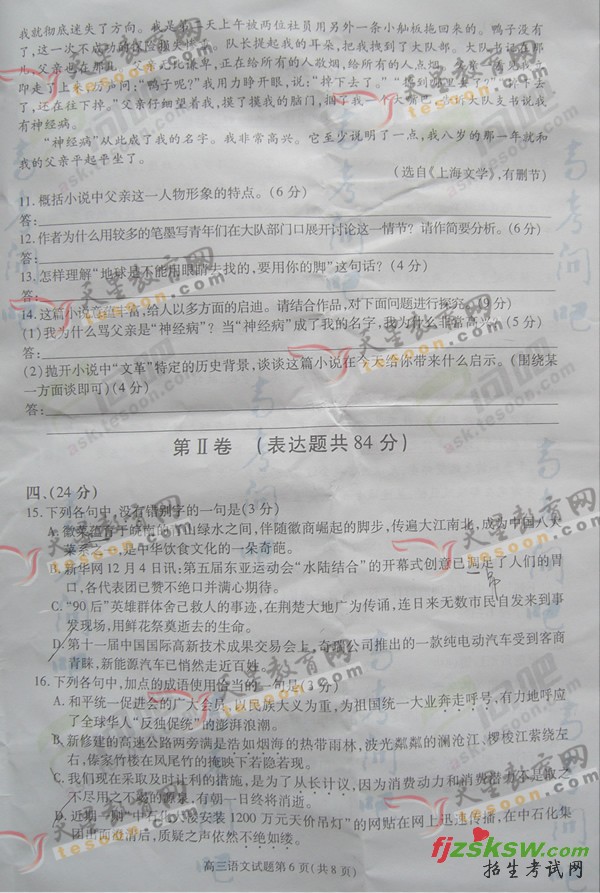 我就彻底迷失了方向。我是第二天上午被两位社员用另外一条小船板拖回来的。鸭子没有
了,这一次不成功的
队长提起我的耳朵,把我拽到了大队部。大队书记在那
儿,父亲也在那儿
正在给所有的人敬烟,给所有的人点烟。
即走了上来,厉声问:"鸭子呢?"我用力睁开眼,说:"掉下去了。"
了,还在往下掉。"父亲仔细望着我,摸了摸我的脑门,掴了我一个大嘴巴
大队支书说我
有神经病。
"神经病"从此成了我的名字。我非常高兴。它至少说明了一点,我八岁的那一年就和
我的父亲平起平坐了。
(选自《上海文学》,有删节)
11. 概括小说中父亲这一人物形象的特点。(6 分)
答:
12. 作者为什么用较多的笔墨写青年们在大队部门口展开讨论这一情节?请作简要分析。(6 分)
答:
13. 怎样理解"地球是不能用眼睛去找的,要用你的脚"这句话?(4 分)
答:
14. 这篇小说意蕴丰富,给人以多方面的启迪。请结合作品,对下面问题进行探究。(9 分)
(1)我为什么骂父亲是"神经病"?当"神经病"成了我的名字,我为什么非常高兴。(5 分)
答:
(2)抛开小说中"文革"特定的历史背景,谈谈这篇小说在今天给你带来什么启示。(围绕某
一方面谈即可)(4 分)
答:
第Ⅱ卷 (表达题共 84 分)
四、(24 分)
15. 下列各句中,没有错别字的一句是(3 分)
A. 徽菜蕴育于皖南的青山绿水之间,伴随徽商崛起的脚步,传遍大江南北,成为中国八大
菜系之一,是中华饮食文化的一朵奇葩。
B. 新华网 12 月 4 日讯:第五届东亚运动会"水陆结合"的开幕式创意已满足了人们的胃
口,各代表团已赞不绝口并满心期待。
C. "90 后"英雄群体舍己救人的事迹,在荆楚大地广为传诵,连日来无数市民自发来到事
发现场,用鲜花祭奠逝去的生命。
D. 第十一届中国国际高新技术成果交易会上,奇瑞公司推出的一款纯电动汽车受到客商
青睐,新能源汽车已悄然走近百姓。
16. 下列各句中,加点的成语使用恰当的一句是(3 分)
A. 和平统一促进会的广大会员,以民族大义为重,为祖国统一大业奔走呼号,有力地呼应
了全球华人"反独促统"的澎湃浪潮。
B. 新修建的高速公路两旁满是浩如烟海的热带雨林,波光粼粼的澜沧江、椤梭江萦绕左
右、傣家竹楼在凤尾竹的掩映下若隐若现。
C. 我们现在采取及时让利的措施,是为了从长计议,因为消费动力和消费潜力不是取之
不尽用之不竭的
有朝一日终将消逝。
D. 近期一则"中石化
安装 1200 万元天价吊灯"的网贴在网上迅速传播,在中石化集
团出面澄清后,质疑之声依然不绝如缕。
高三语文试题第 6 页(共 8 页)
天星教育网
tesoon.com
高考问吧
ask.tesoon.com
招生考试网
fjzsksw.com